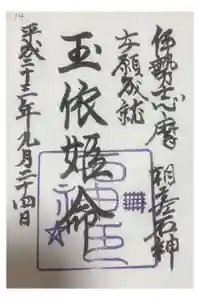 14
伊勢志摩
相差石神
女願成就
玉依姫命
平成二十三年九月二十四日
石神